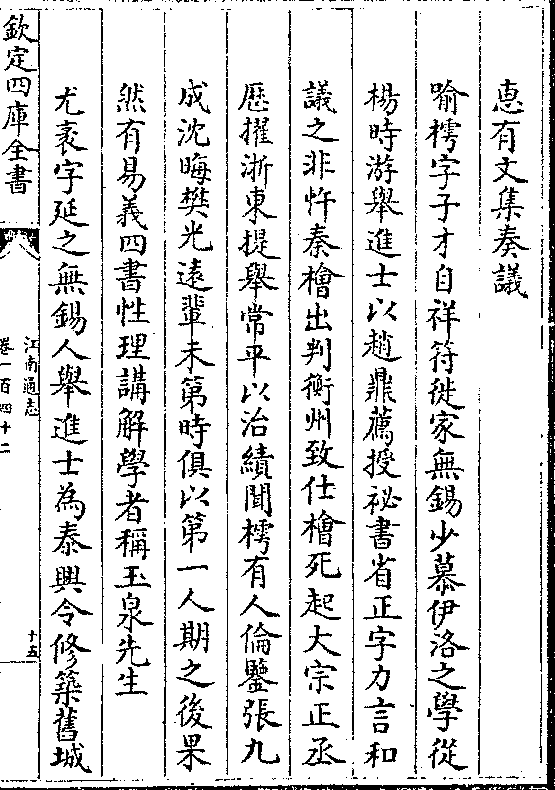 惠有文集奏議
喻樗字子才自祥符徙家無錫少慕伊洛之學從
楊時游舉進士以趙鼎薦授祕書省正字力言和
議之非忤秦檜出判衡州致仕檜死起大宗正丞
歷擢浙東提舉常平以治績聞樗有人倫鑒張九
成沈晦樊光遠輩未第時俱以第一人期之後果
然有易義四書性理講解學者稱玉泉先生
尤袤字延之無錫人舉進士為泰興令修築舊城
欽定四庫全書
江南通志
卷一百四十二
十五